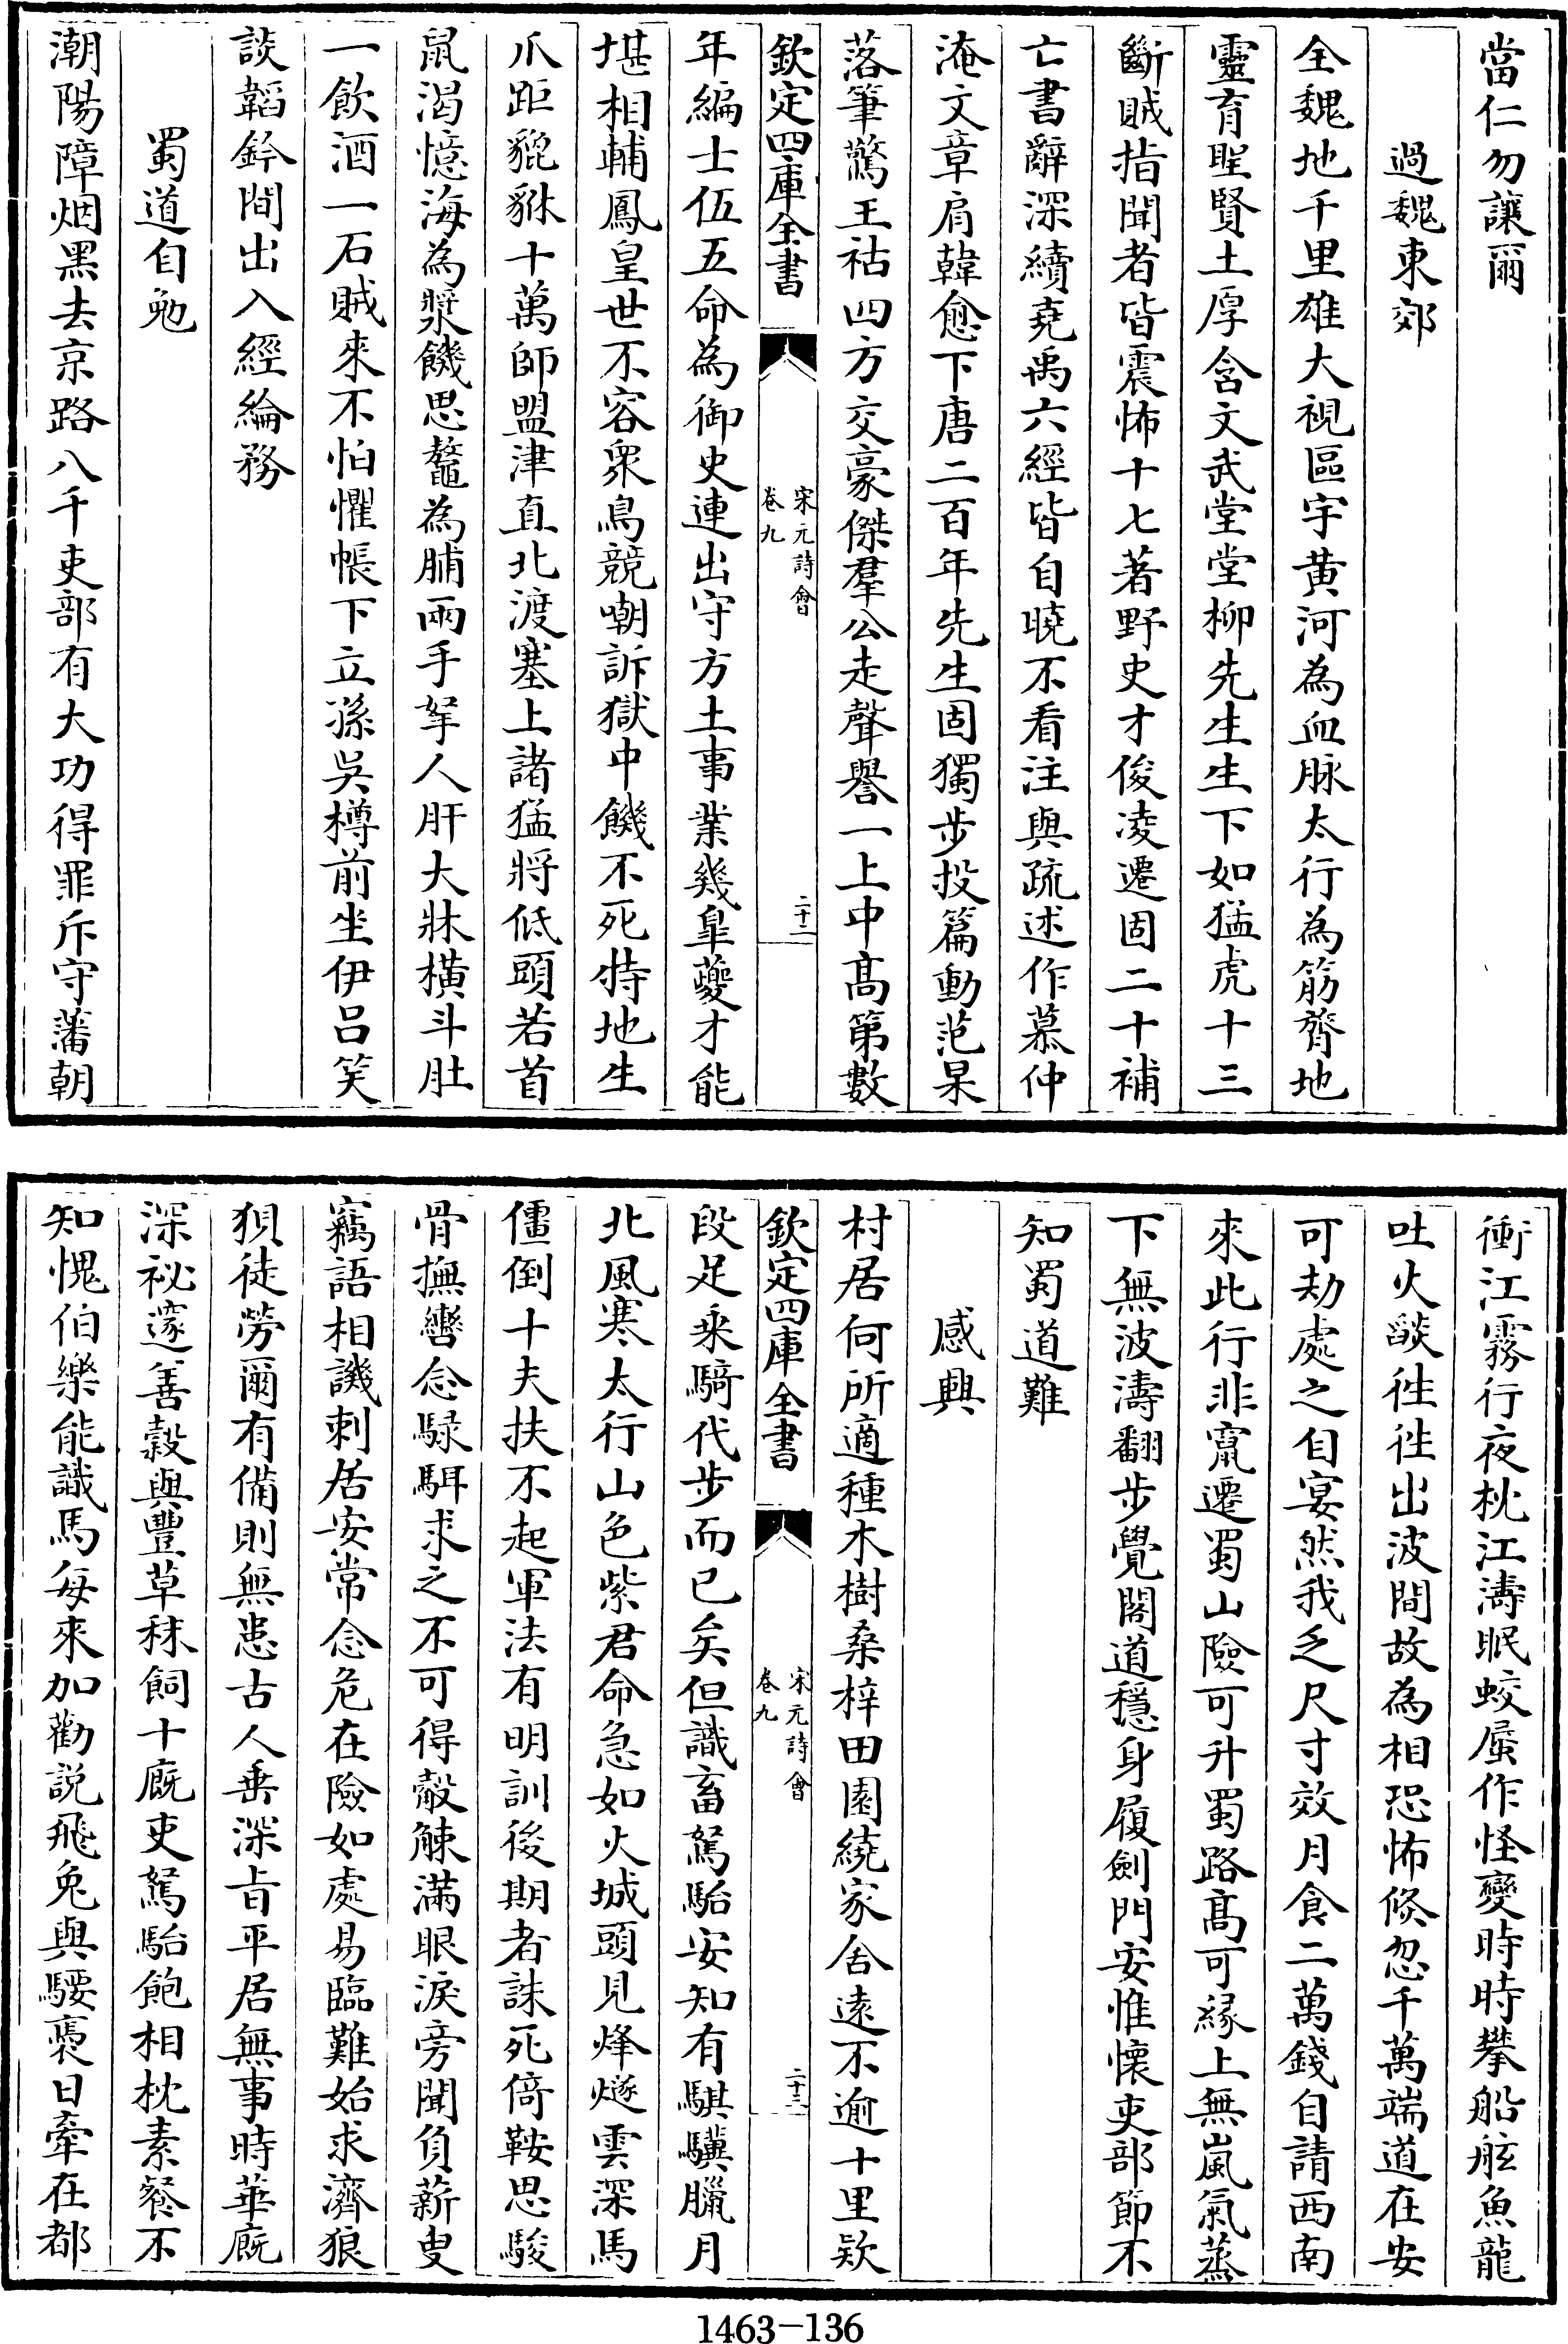 當仁勿讓爾
過魏東郊
全魏地千里雄大視區宇黄河為血脉太行為筋膂地
靈育聖賢土厚含文武堂堂柳先生生下如猛虎十三
斷賊指聞者皆震怖十七著野史才俊凌遷固二十補
亡書辭深續堯禹六經皆自曉不看注與疏述作慕仲
淹文章肩韓愈下唐二百年先生固獨步投篇動范杲
落筆驚王祜四方交豪傑羣公走聲譽一上中髙第數
欽定四庫全書
宋元詩會
卷九
二十二
年編士伍五命為御史連出守方土事業幾臯夔才能
堪相輔鳳皇世不容衆鳥競嘲訴獄中饑不死特地生
爪距貔貅十萬師盟津直北渡塞上諸猛將低頭若首
鼠渴憶海為漿饑思鼇為脯兩手拏人肝大牀橫斗肚
一飲酒一石賊來不怕懼帳下立孫吳樽前坐伊吕笑
談韜鈐間出入經綸務
蜀道自勉
潮陽障烟黑去京路八千吏部有大功得罪斥守藩朝
衝江霧行夜枕江濤眠蛟蜃作怪變時時攀船舷魚龍
吐火燄徃徃出波間故為相恐怖倐忽千萬端道在安
可劫處之自宴然我乏尺寸效月食二萬錢自請西南
來此行非竄遷蜀山險可升蜀路髙可緣上無嵐氣蒸
下無波濤翻步覺閣道穩身履劍門安惟懷吏部節不
知蜀道難
感興
村居何所適種木樹桑梓田園繞家舍逺不逾十里欵
欽定四庫全書
宋元詩會
卷九
二十三
段足乘騎代步而已矣但識畜駑駘安知有騏驥臘月
北風寒太行山色紫君命急如火城頭見烽燧雲深馬
僵倒十夫扶不起軍法有明訓後期者誅死倚鞍思駿
骨撫轡念騄駬求之不可得觳觫滿眼淚旁聞負薪叟
竊語相譏刺居安常念危在險如處易臨難始求濟狼
狽徒勞爾有備則無患古人垂深旨平居無事時華廐
深祕邃善穀與豐草秣飼十廐吏駑駘飽相枕素餐不
知愧伯樂能識馬每來加勸説飛兔與騕褭日牽在都
1463-136